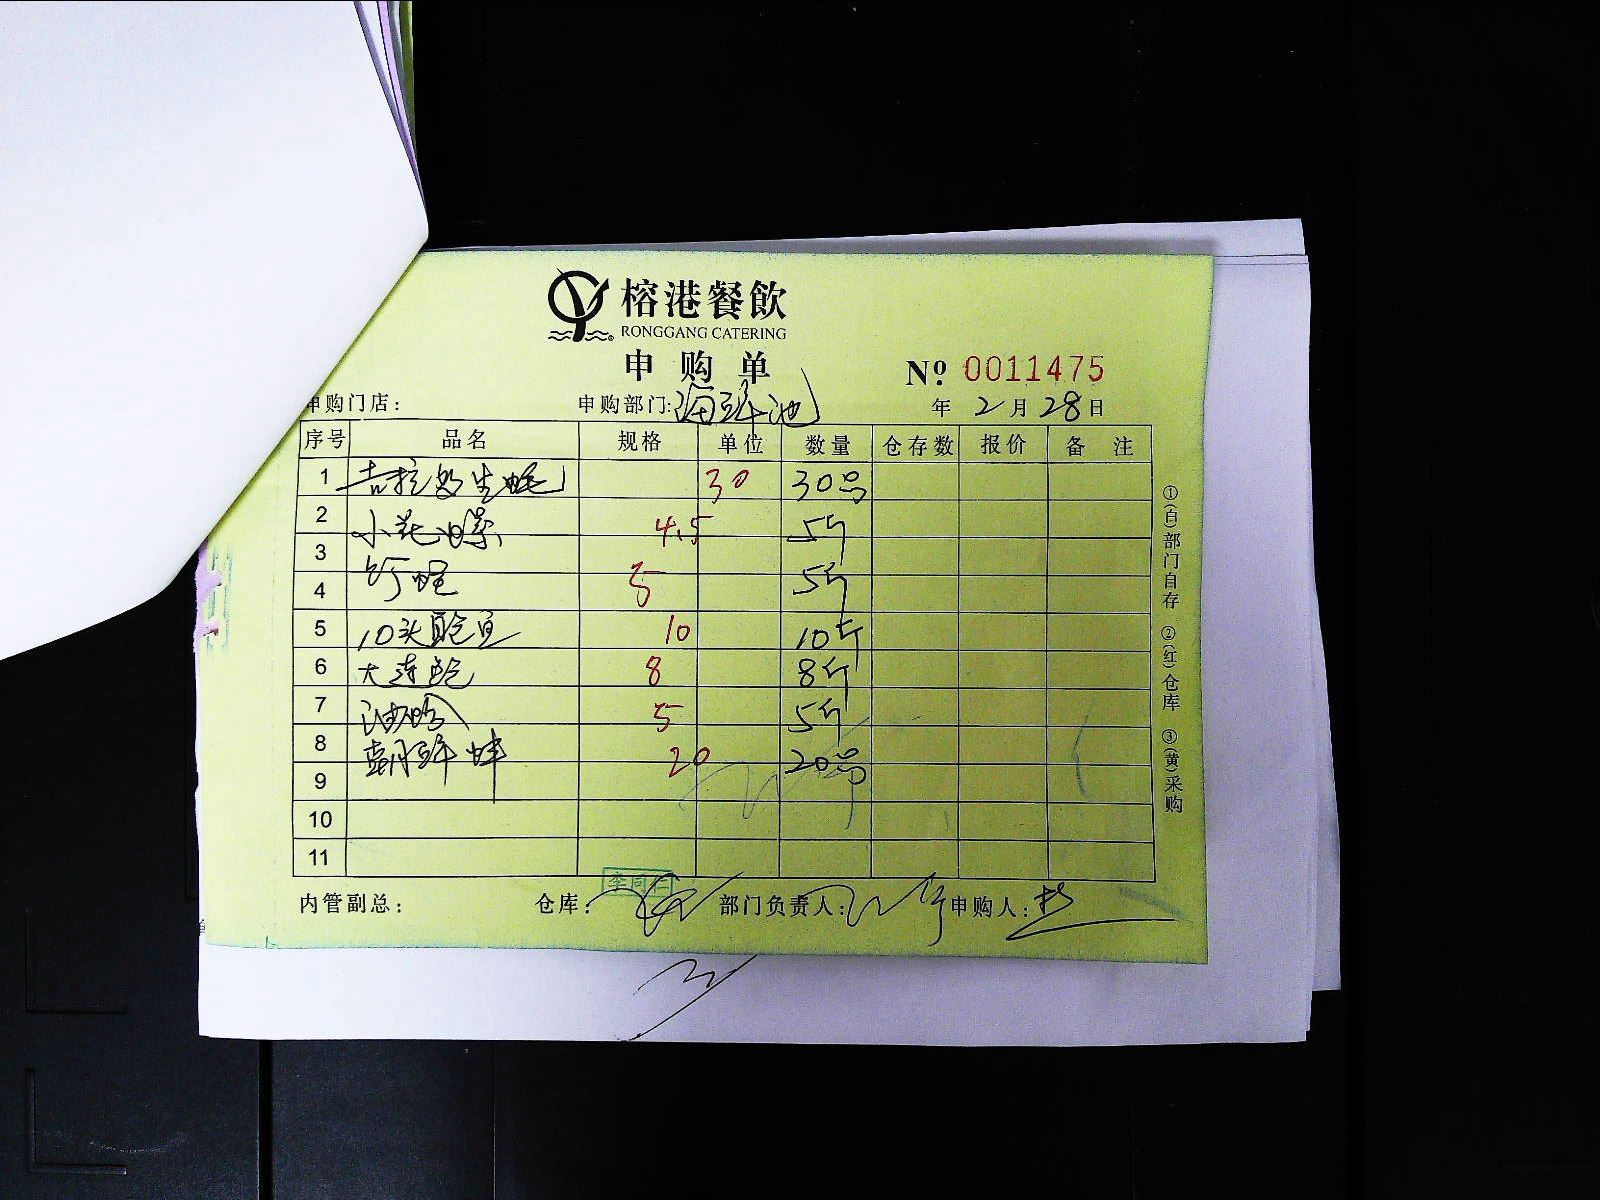 榕港餐飲
RONGGANG CATERING
申购单
№ 0011475
申购门店： 申购部门:海鲜池 年 2月28日
序号 品名 规格 单位 数量 仓存数 报价 备 注
1 吉拉多生蚝 30 30号
2 小花螺 4.5 5斤
3
4 5 5斤
5 10头鲍 10 10斤
6 大连鲍 8 8斤
7 油蛤 5 5斤
8 朝鲜蚌 20 20号
9
10
11
①(白)部门自存 ②(红)仓库 ③(黄)采购
李同仁
内管副总： 仓库： 部门负责人： 申购人：